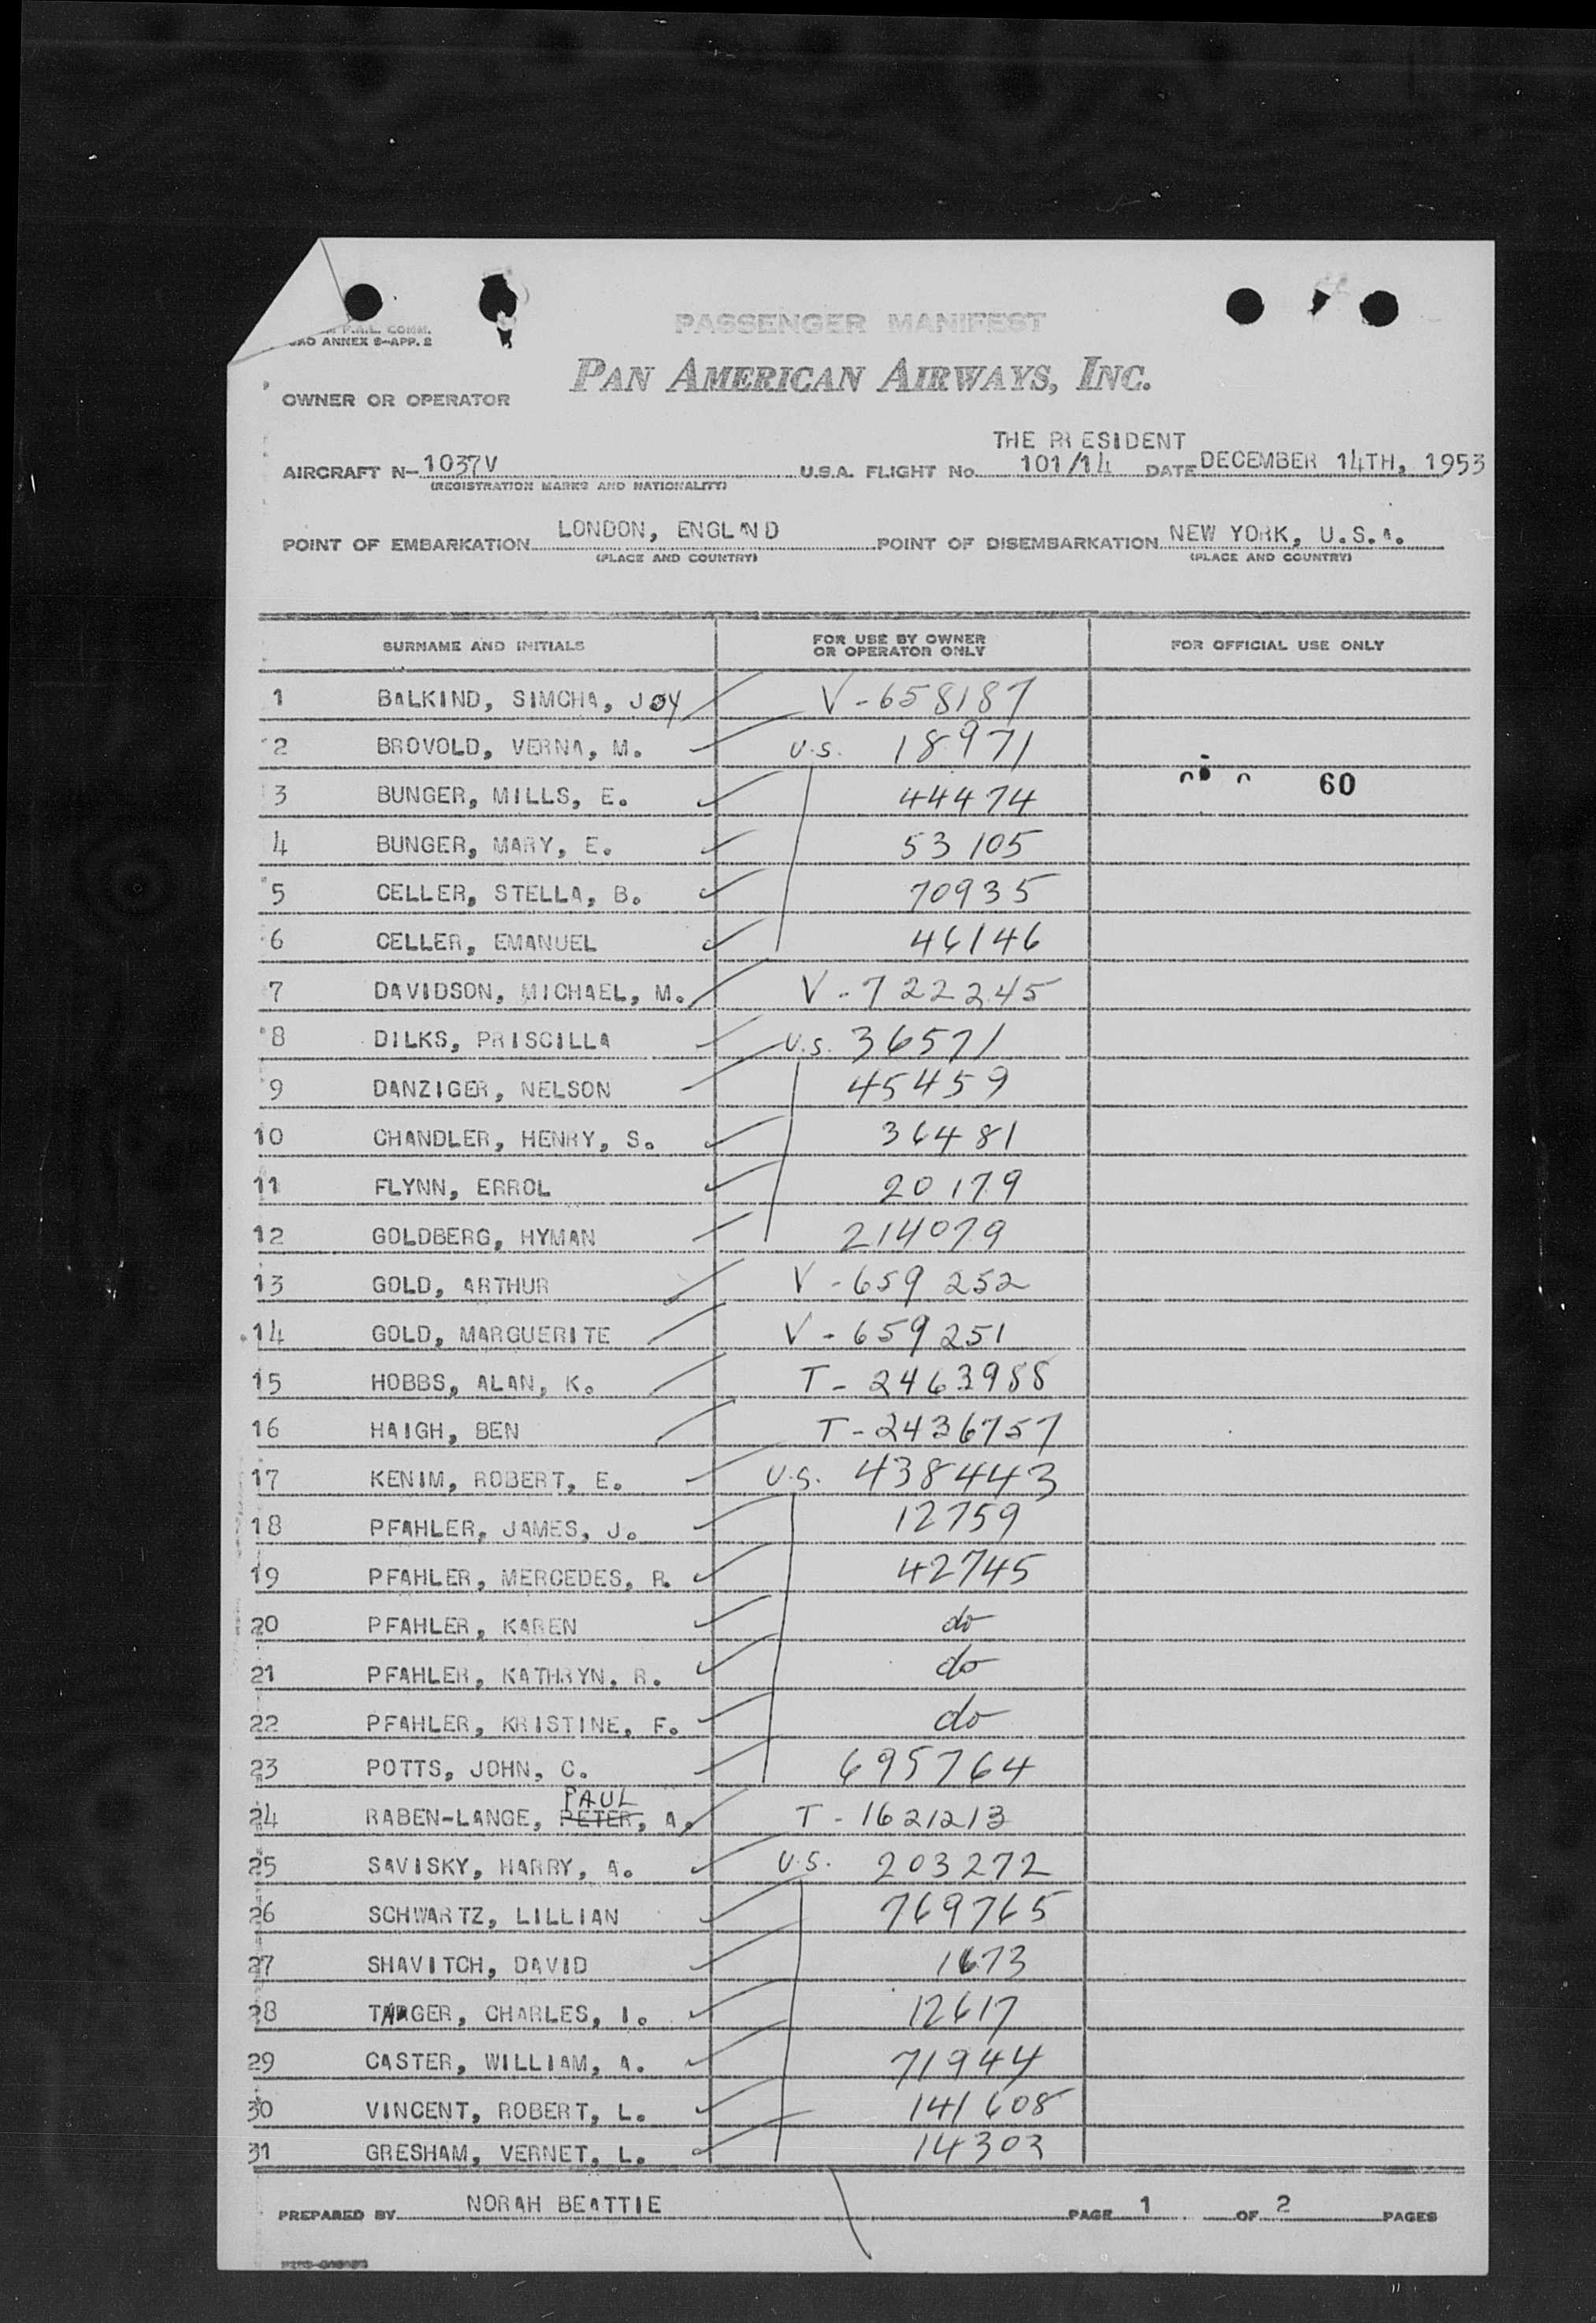 P.A.L. COMM.
ANNEX 9-APP. 2
PASSENGER MANIFEST
PAN AMERICAN AIRWAYS, INC.
OWNER OR OPERATOR
THE PRESIDENT
AIRCRAFT N- 1037V U.S.A. FLIGHT No. 101/14 DATE DECEMBER 14TH, 1953
(REGISTRATION MARKS AND NATIONALITY)
POINT OF EMBARKATION LONDON, ENGLAND POINT OF DISEMBARKATION NEW YORK, U.S.A.
(PLACE AND COUNTRY) (PLACE AND COUNTRY)
SURNAME AND INITIALS FOR USE BY OWNER OR OPERATOR ONLY FOR OFFICIAL USE ONLY
1 BALKIND, SIMCHA, JOY V-658187
2 BROVOLD, VERNA, M. U.S. 18971
3 BUNGER, MILLS, E. 44474 60
4 BUNGER, MARY, E. 53105
5 CELLER, STELLA, B. 70935
6 CELLER, EMANUEL 46146
7 DAVIDSON, MICHAEL, M. V-722245
8 DILKS, PRISCILLA U.S. 36571
9 DANZIGER, NELSON 45459
10 CHANDLER, HENRY, S. 36481
11 FLYNN, ERROL 20179
12 GOLDBERG, HYMAN 214079
13 GOLD, ARTHUR V-659252
14 GOLD, MARGUERITE V-659251
15 HOBBS, ALAN, K. T-2463988
16 HAIGH, BEN T-2436757
17 KENIM, ROBERT, E. U.S. 438443
18 PFAHLER, JAMES, J. 12759
19 PFAHLER, MERCEDES, R. 42745
20 PFAHLER, KAREN do
21 PFAHLER, KATHRYN, R. do
22 PFAHLER, KRISTINE, F. do
23 POTTS, JOHN, C. 695764
PAUL
24 RABEN-LANGE, PETER, A. T-1621213
25 SAVISKY, HARRY, A. U.S. 203272
26 SCHWARTZ, LILLIAN 769765
27 SHAVITCH, DAVID 1673
28 TARGER, CHARLES, I. 12617
29 CASTER, WILLIAM, A. 71944
30 VINCENT, ROBERT, L. 141608
31 GRESHAM, VERNET, L. 14303
PREPARED BY NORAH BEATTIE PAGE 1 OF 2 PAGES